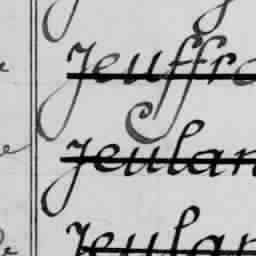 Jeuffro
Jeulan
Jeulan